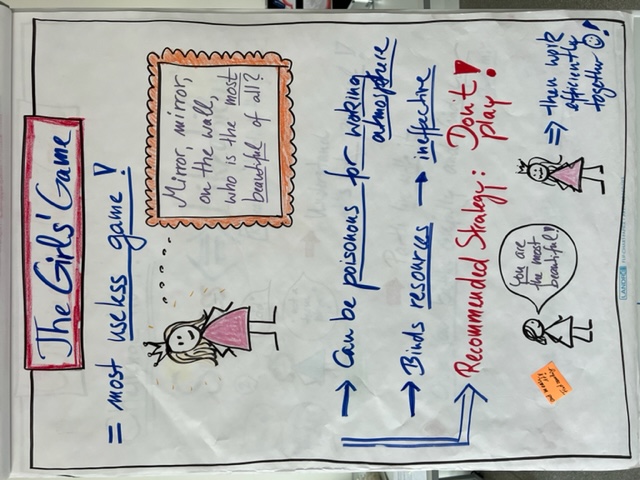 The Girls' Game
= most useless game!
Mirror, mirror,
on the wall,
who is the most
beautiful of all?
→ Can be poisonous for working
atmosphere
→ Binds resources → ineffective
Recommended Strategy: Don't
play!
You are
the most
beautiful!
⇒ then work
efficiently
together ☺!